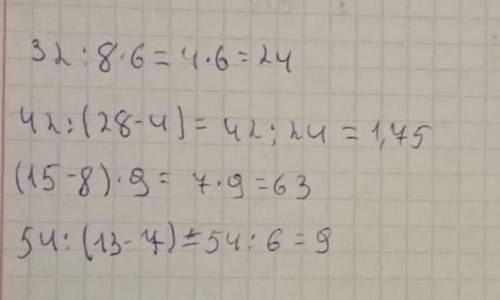 32:8·6=4·6=24
42:(28-4)=42:24=1,75
(15-8)·9=7·9=63
54:(13-7)=54:6=9